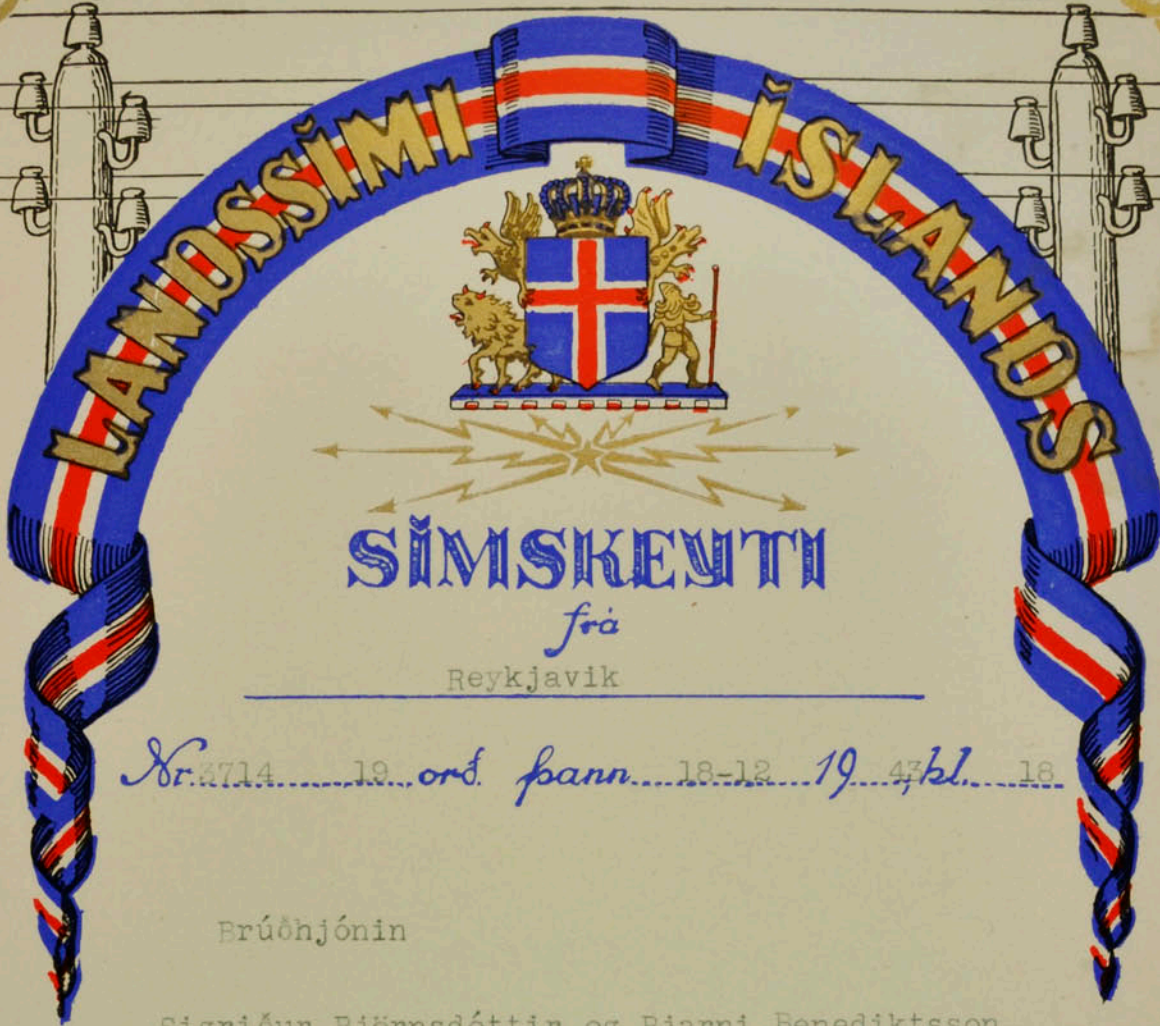 LANDSSÍMI ÍSLANDS
SÍMSKEYTI
frá
Reykjavik
Nr. 3714 19 orð. þann 18-12 19 43, kl. 18
Brúðhjónin
Sigríður Björnsdóttir og Bjarni Benediktsson